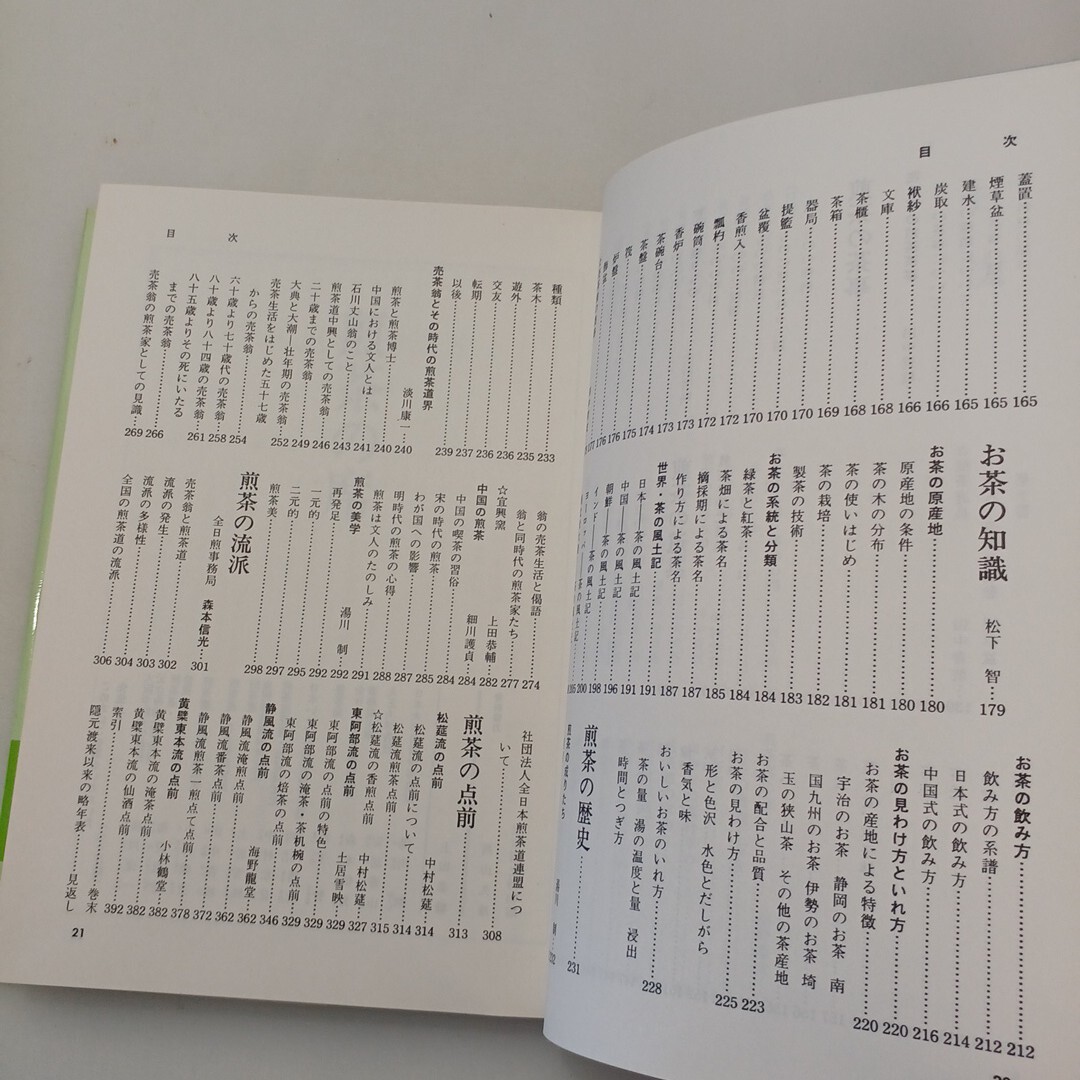 目次
蓋置 165
煙草盆 165
建水 165
炭取 166
袱紗 166
文庫 168
茶櫃 168
茶箱 169
器局 170
提籃 170
盆覆 170
香煎入 172
瓢杓 172
碗筒 173
香炉 173
茶碗台 174
茶盤 175
筏 176
炉盤 176
お茶の知識 松下 智 179
お茶の原産地 180
原産地の条件 180
茶の木の分布 181
茶の使いはじめ 181
茶の栽培 182
製茶の技術 183
お茶の系統と分類 184
緑茶と紅茶 184
茶畑による茶名 185
摘採期による茶名 187
作り方による茶名 187
世界・茶の風土記 191
日本——茶の風土記 191
中国——茶の風土記 196
朝鮮——茶の風土記 198
インド——茶の風土記 200
お茶の飲み方 212
飲み方の系譜 212
日本式の飲み方 214
中国式の飲み方 216
お茶の見わけ方といれ方 220
お茶の産地による特徴 220
宇治のお茶 静岡のお茶 南
国九州のお茶 伊勢のお茶 埼
玉の狭山茶 その他の茶産地
お茶の配合と品質 223
お茶の見わけ方 225
形と色沢 水色とだしがら
香気と味
おいしいお茶のいれ方 228
茶の量 湯の温度と量 浸出
時間とつぎ方
煎茶の歴史 231
煎茶の成りたち
目次
種類 233
茶木 235
遊外 236
交友 236
転期 237
以後 239
売茶翁とその時代の煎茶道界
淡川康一 240
煎茶と煎茶博士 240
中国における文人とは 241
石川丈山翁のこと 243
煎茶道中興としての売茶翁 246
二十歳までの売茶翁 249
大典と大潮—壮年期の売茶翁 252
売茶生活をはじめた五十七歳
からの売茶翁 254
六十歳より七十歳代の売茶翁 258
八十歳より八十四歳の売茶翁 261
八十五歳よりその死にいたる
までの売茶翁 266
売茶翁の煎茶家としての見識 269
翁の売茶生活と偈語 274
翁と同時代の煎茶家たち 277
☆宜興窯 上田恭輔 282
中国の煎茶 細川護貞 284
中国の喫茶の習俗 284
宋の時代の煎茶 285
わが国への影響 287
明時代の煎茶の心得 288
煎茶は文人のたのしみ 291
煎茶の美学 湯川 制 292
再発足 292
一元的 295
二元的 297
煎茶美 298
煎茶の流派
全日煎事務局 森本信光 301
売茶翁と煎茶道 302
流派の発生 303
流派の多様性 304
全国の煎茶道の流派 306
社団法人全日本煎茶道連盟につ
いて 308
煎茶の点前 313
松莚流の点前 中村松莚 314
松莚流の点前について 314
松莚流煎茶点前 315
☆松莚流の香煎点前 中村松莚 327
東阿部流の点前 土居雪映 329
東阿部流の点前の特色 329
東阿部流の淹茶・茶机椀の点前 329
東阿部流の焙茶の点前 346
静風流の点前 海野龍堂 362
静風流淹煎点前 362
静風流番茶点前 372
静風流煎茶一煎点て点前 378
黄檗東本流の点前 小林鶴堂 382
黄檗東本流の淹茶点前 382
黄檗東本流の仙酒点前 392
索引 巻末
隠元渡来以来の略年表 見返し
21